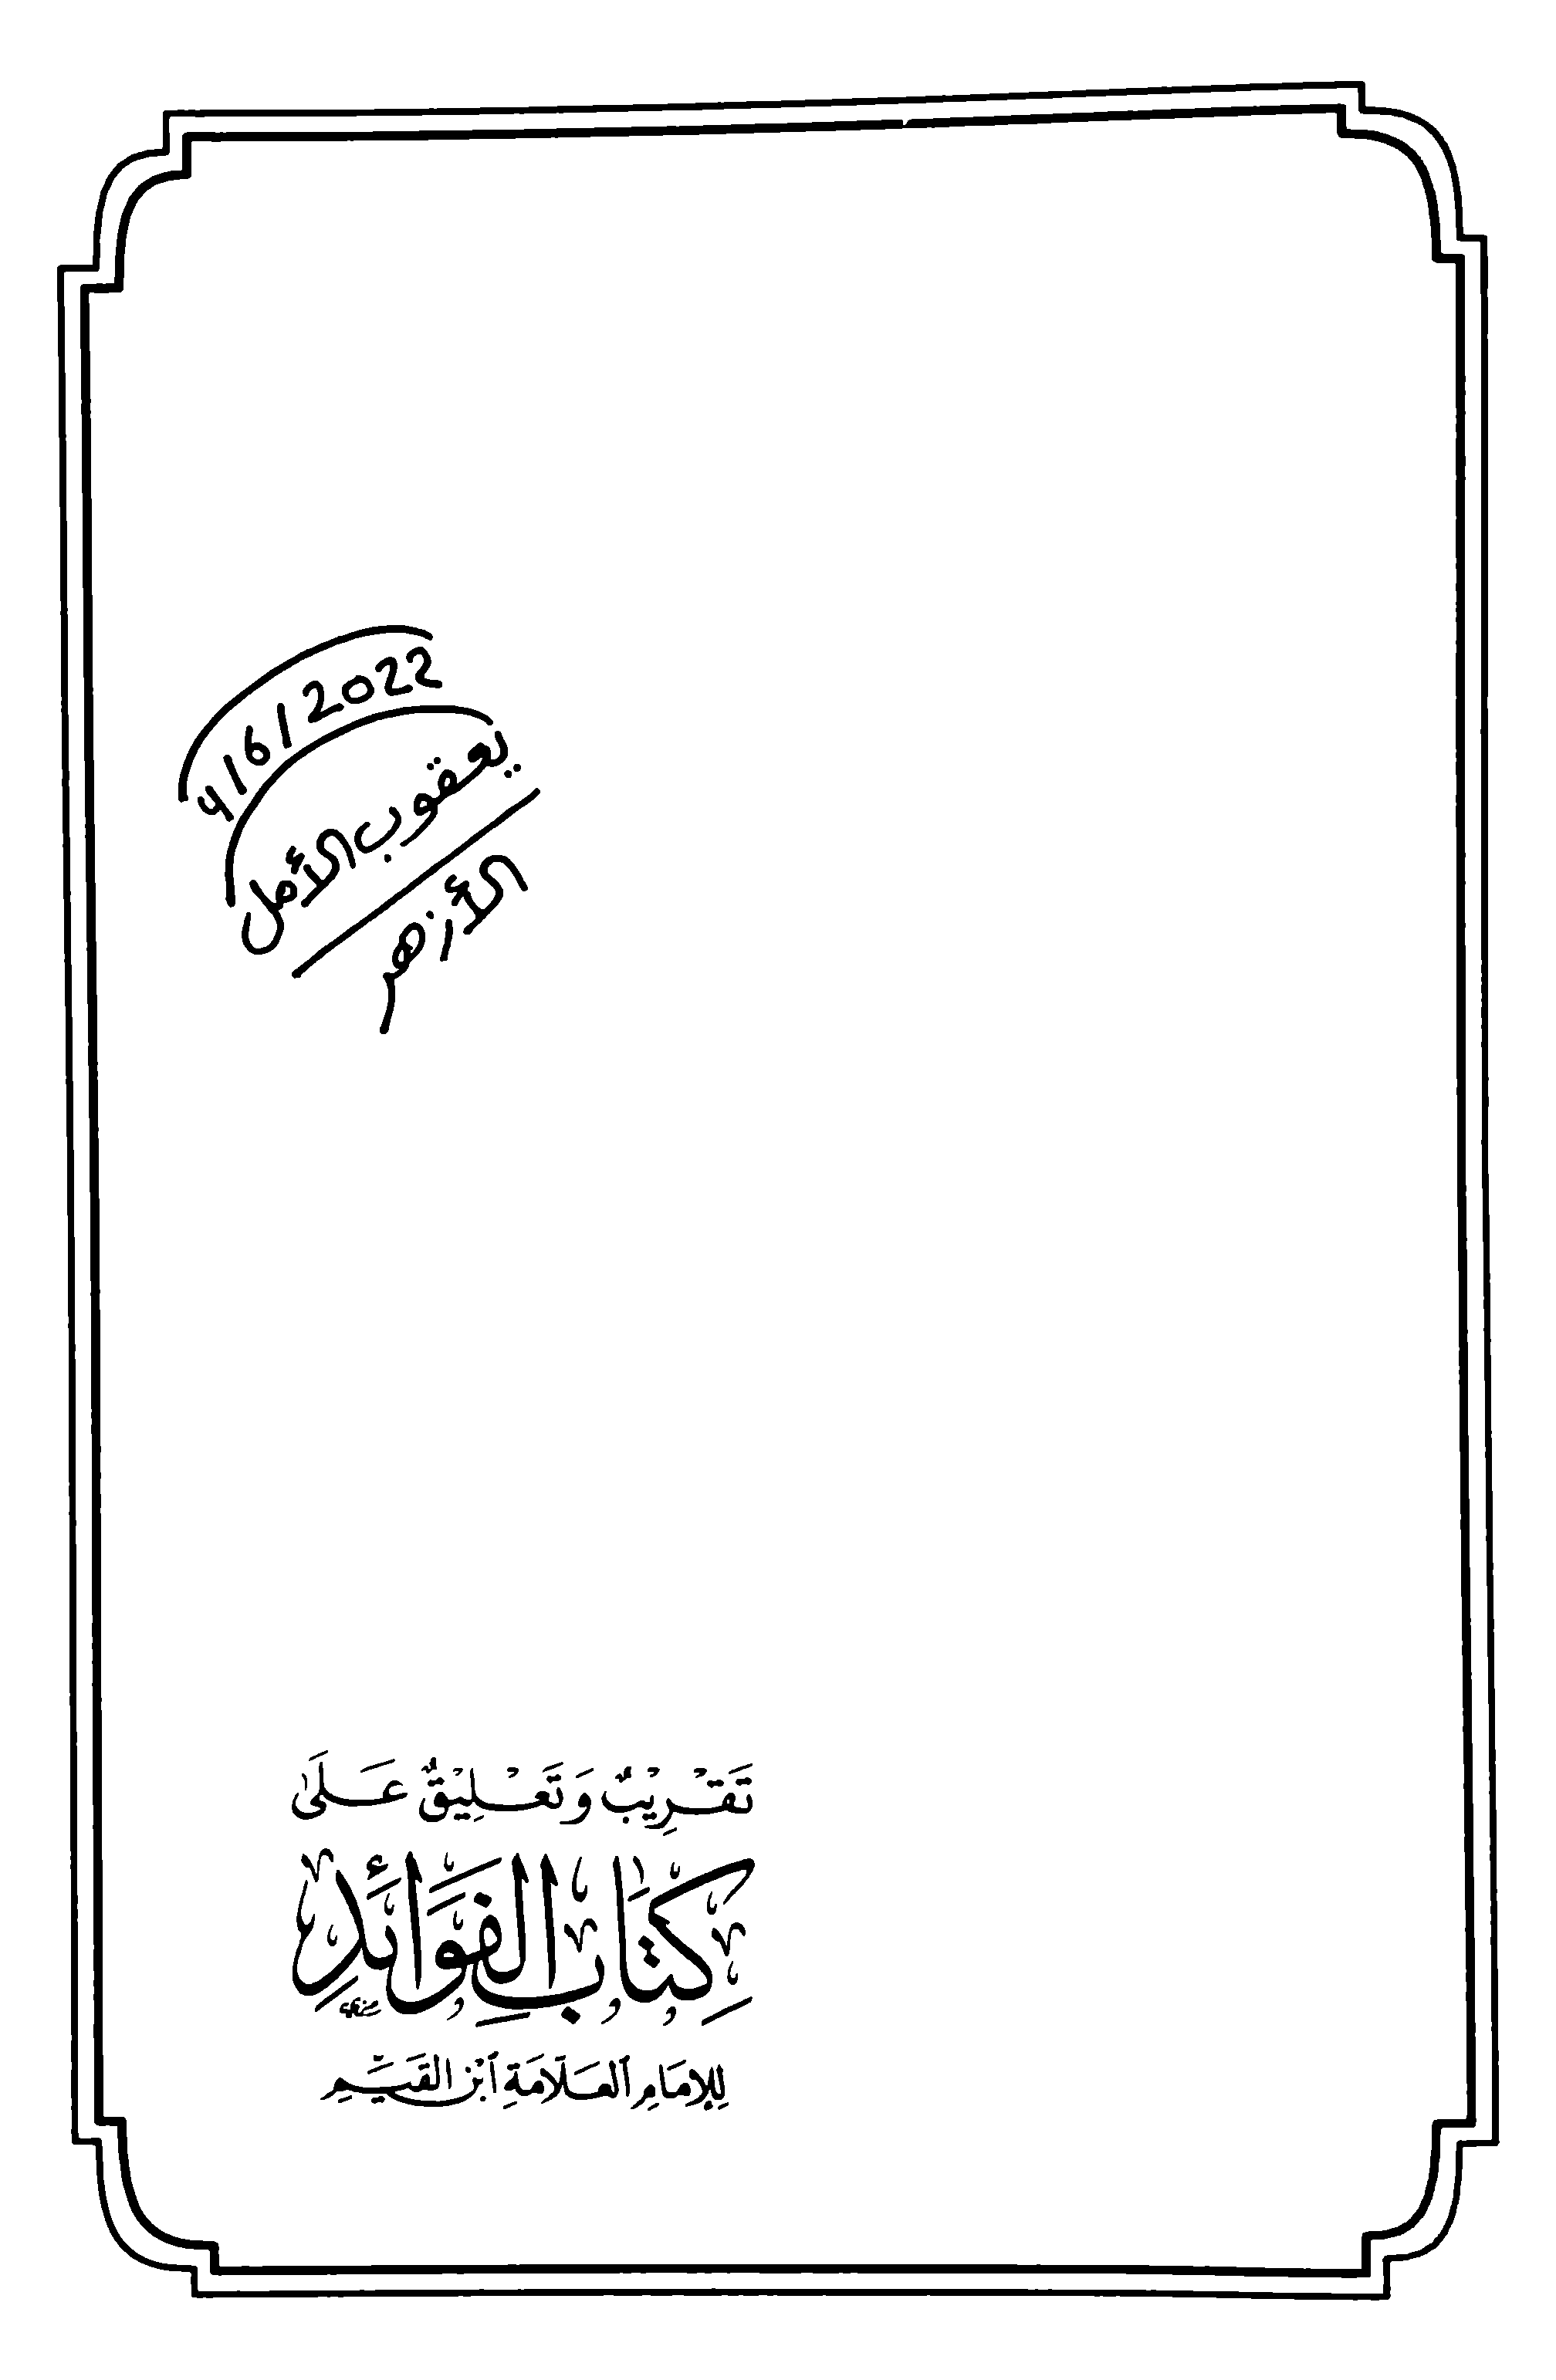 4/6/2022
يعقوب الأمل
الأزهر
تَقْرِيْبٌ وَتَعْلِيْقٌ عَلَىٰ
كِتَابُ الفَوَائِدِ
لِلإِمَامِ العَلَّامَةِ ابْنِ القَيِّمِ